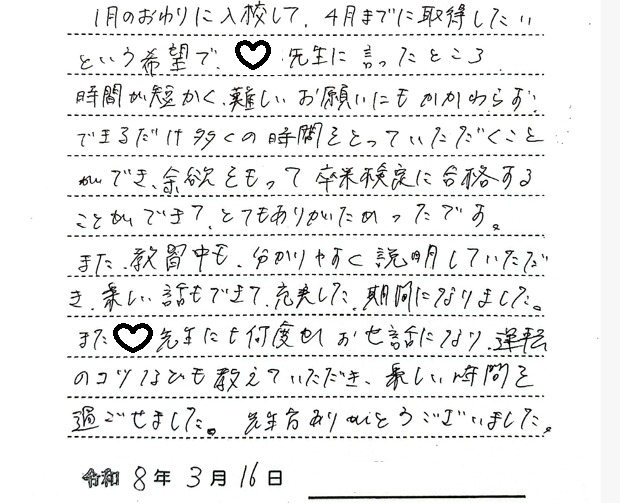 1月のおわりに入校して、4月までに取得したい
という希望で、♡先生に言ったところ
時間が短かく、難しいお願いにもかかわらず、
できるだけ多くの時間をとっていただくこと
ができ、余欲をもって卒業検定に合格する
ことができて、とてもありがたかったです。
また、教習中も、分かりやすく説明していただ
き、楽しい話もできて、充実した、期間になりました。
また♡先生にも何度かお世話になり、運転
のコツなども教えていただき、楽しい時間を
過ごせました。先生方ありがとうございました。
令和8年3月16日